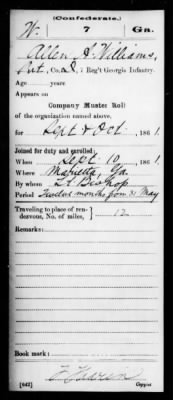 (Confederate.)
W. 7 Ga.
Allen A. Williams,
Pvt., Co. D, 7 Reg't Georgia Infantry.
Age years.
Appears on
Company Muster Roll
of the organization named above,
for Sept & Oct, 1861.
Joined for duty and enrolled:
When Sept. 10, 1861.
Where Marietta, Ga.
By whom Lt Bishop
Period Twelve months from 31 May
Traveling to place of ren-
dezvous, No. of miles, 12
Remarks:
Book mark:
(642) Copyist.